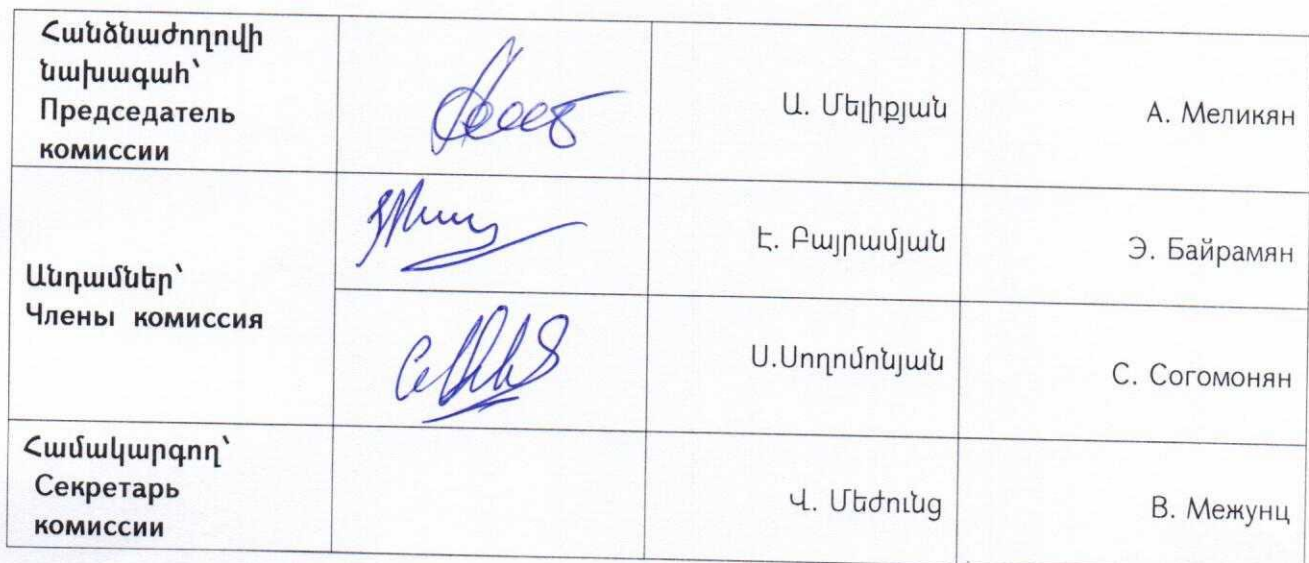 Հանձնաժողովի
նախագահ՝
Председатель
комиссии
Ա. Մելիքյան
А. Меликян
Անդամներ՝
Члены комиссия
Է. Բայրամյան
Э. Байрамян
Ս.Սողոմոնյան
С. Согомонян
Համակարգող՝
Секретарь
комиссии
Վ. Մեժունց
В. Межунц